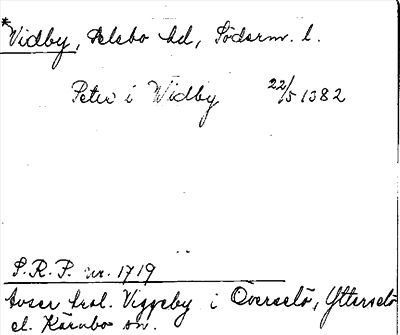 *Vidby, Selebo hd, Söderm. l.
Peter i Widby 22/5 1382
S.R.P. nr. 1719
Avser trol. Viggeby i Överselö, Ytterselö
el. Kärnbo sn.